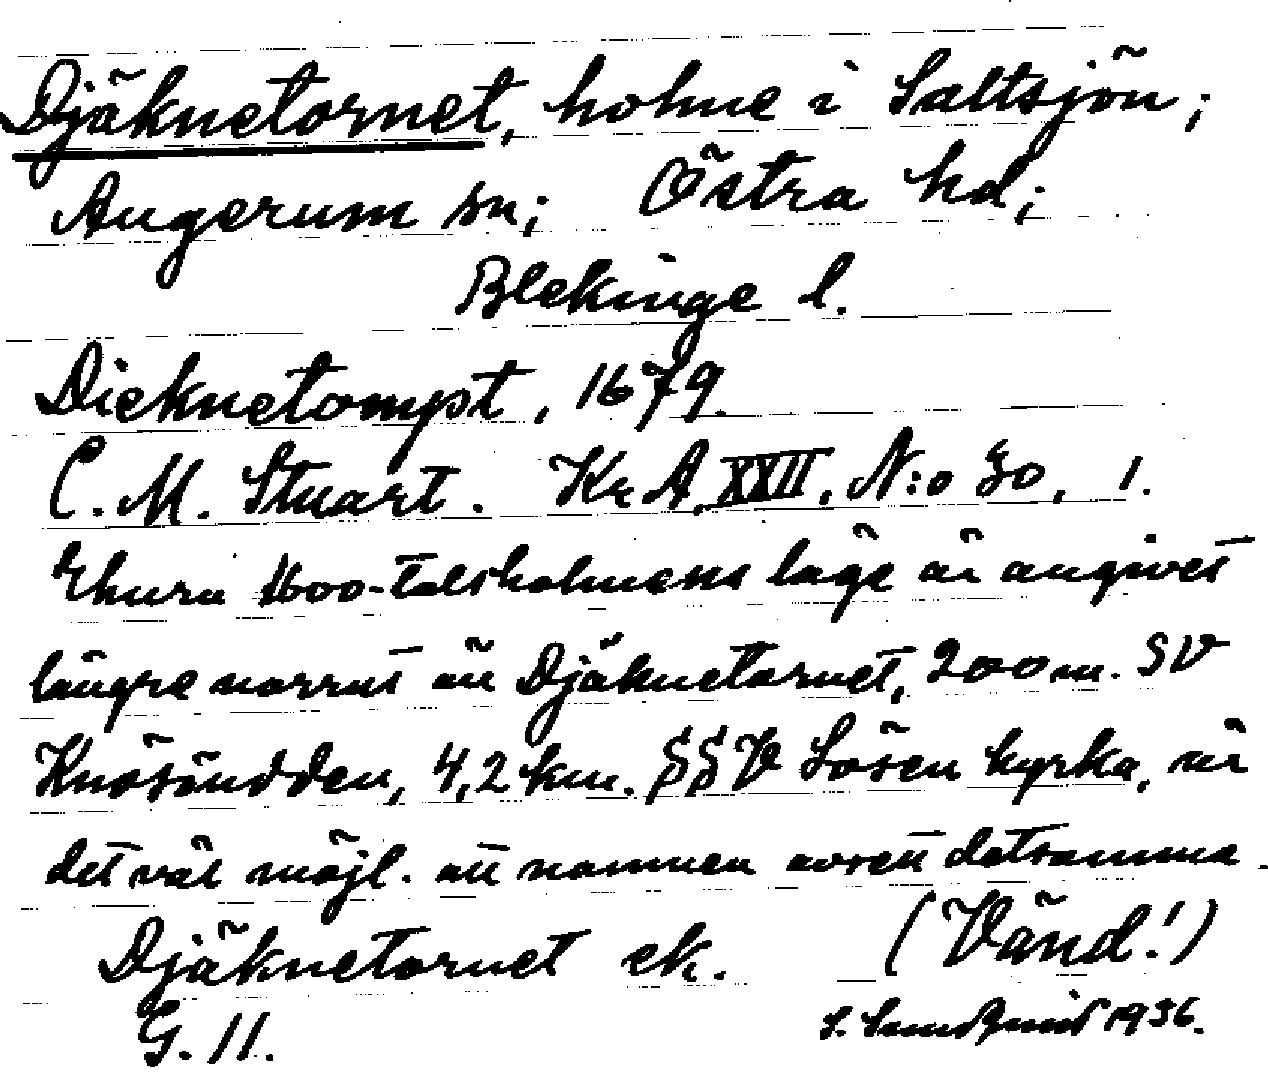 Djäknetornet, holme i Saltsjön;
Augerum sn; Östra hd;
Blekinge l.
Dieknetompt, 1679.
C. M. Stuart. Kr A, XXII, N:o 30, 1.
Ehuru 1600-talsholmens läge är angivet
längre norrut än Djäknetornet, 200 m. SV
Knösöudden, 4,2 km. SSV Lösen kyrka, är
det väl möjl. att namnen avsett detsamma.
Djäknetornet ek. (Vänd!)
G. 11. 1936.